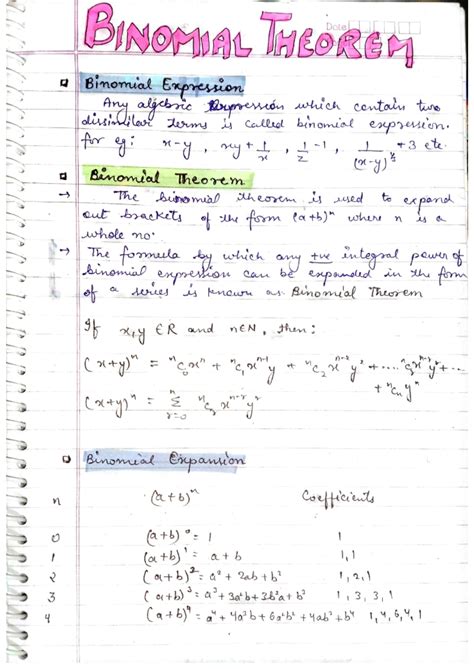 BINOMIAL THEOREM
Date
Binomial Expression
Any algebric expression which contain two
dissimilar terms is called binomial expression.
for eg: x-y , xy + 1/x , 1/z - 1 , 1/(x-y)^½ + 3 etc.
Binomial Theorem
→ The binomial theorem is used to expand
out brackets of the form (a+b)ⁿ where n is a
whole no.
→ The formula by which any +ve integral power of
binomial expression can be expanded in the form
of a series is known as Binomial Theorem
If x,y ∈R and n∈N, then:
(x+y)ⁿ = ⁿC₀xⁿ + ⁿC₁xⁿ⁻¹y + ⁿC₂xⁿ⁻²y² + .... ⁿCᵣxⁿ⁻ʳyʳ + ...
+ ⁿCₙyⁿ
(x+y)ⁿ = Σ n r=0 ⁿCᵣxⁿ⁻ʳyʳ
Binomial Expansion
n (a+b)ⁿ Coefficients
0 (a+b)⁰ = 1 1
1 (a+b)¹ = a+b 1,1
2 (a+b)² = a² + 2ab + b² 1,2,1
3 (a+b)³ = a³ + 3a²b + 3b²a + b³ 1,3,3,1
4 (a+b)⁴ = a⁴ + 4a³b + 6a²b² + 4ab³ + b⁴ 1,4,6,4,1